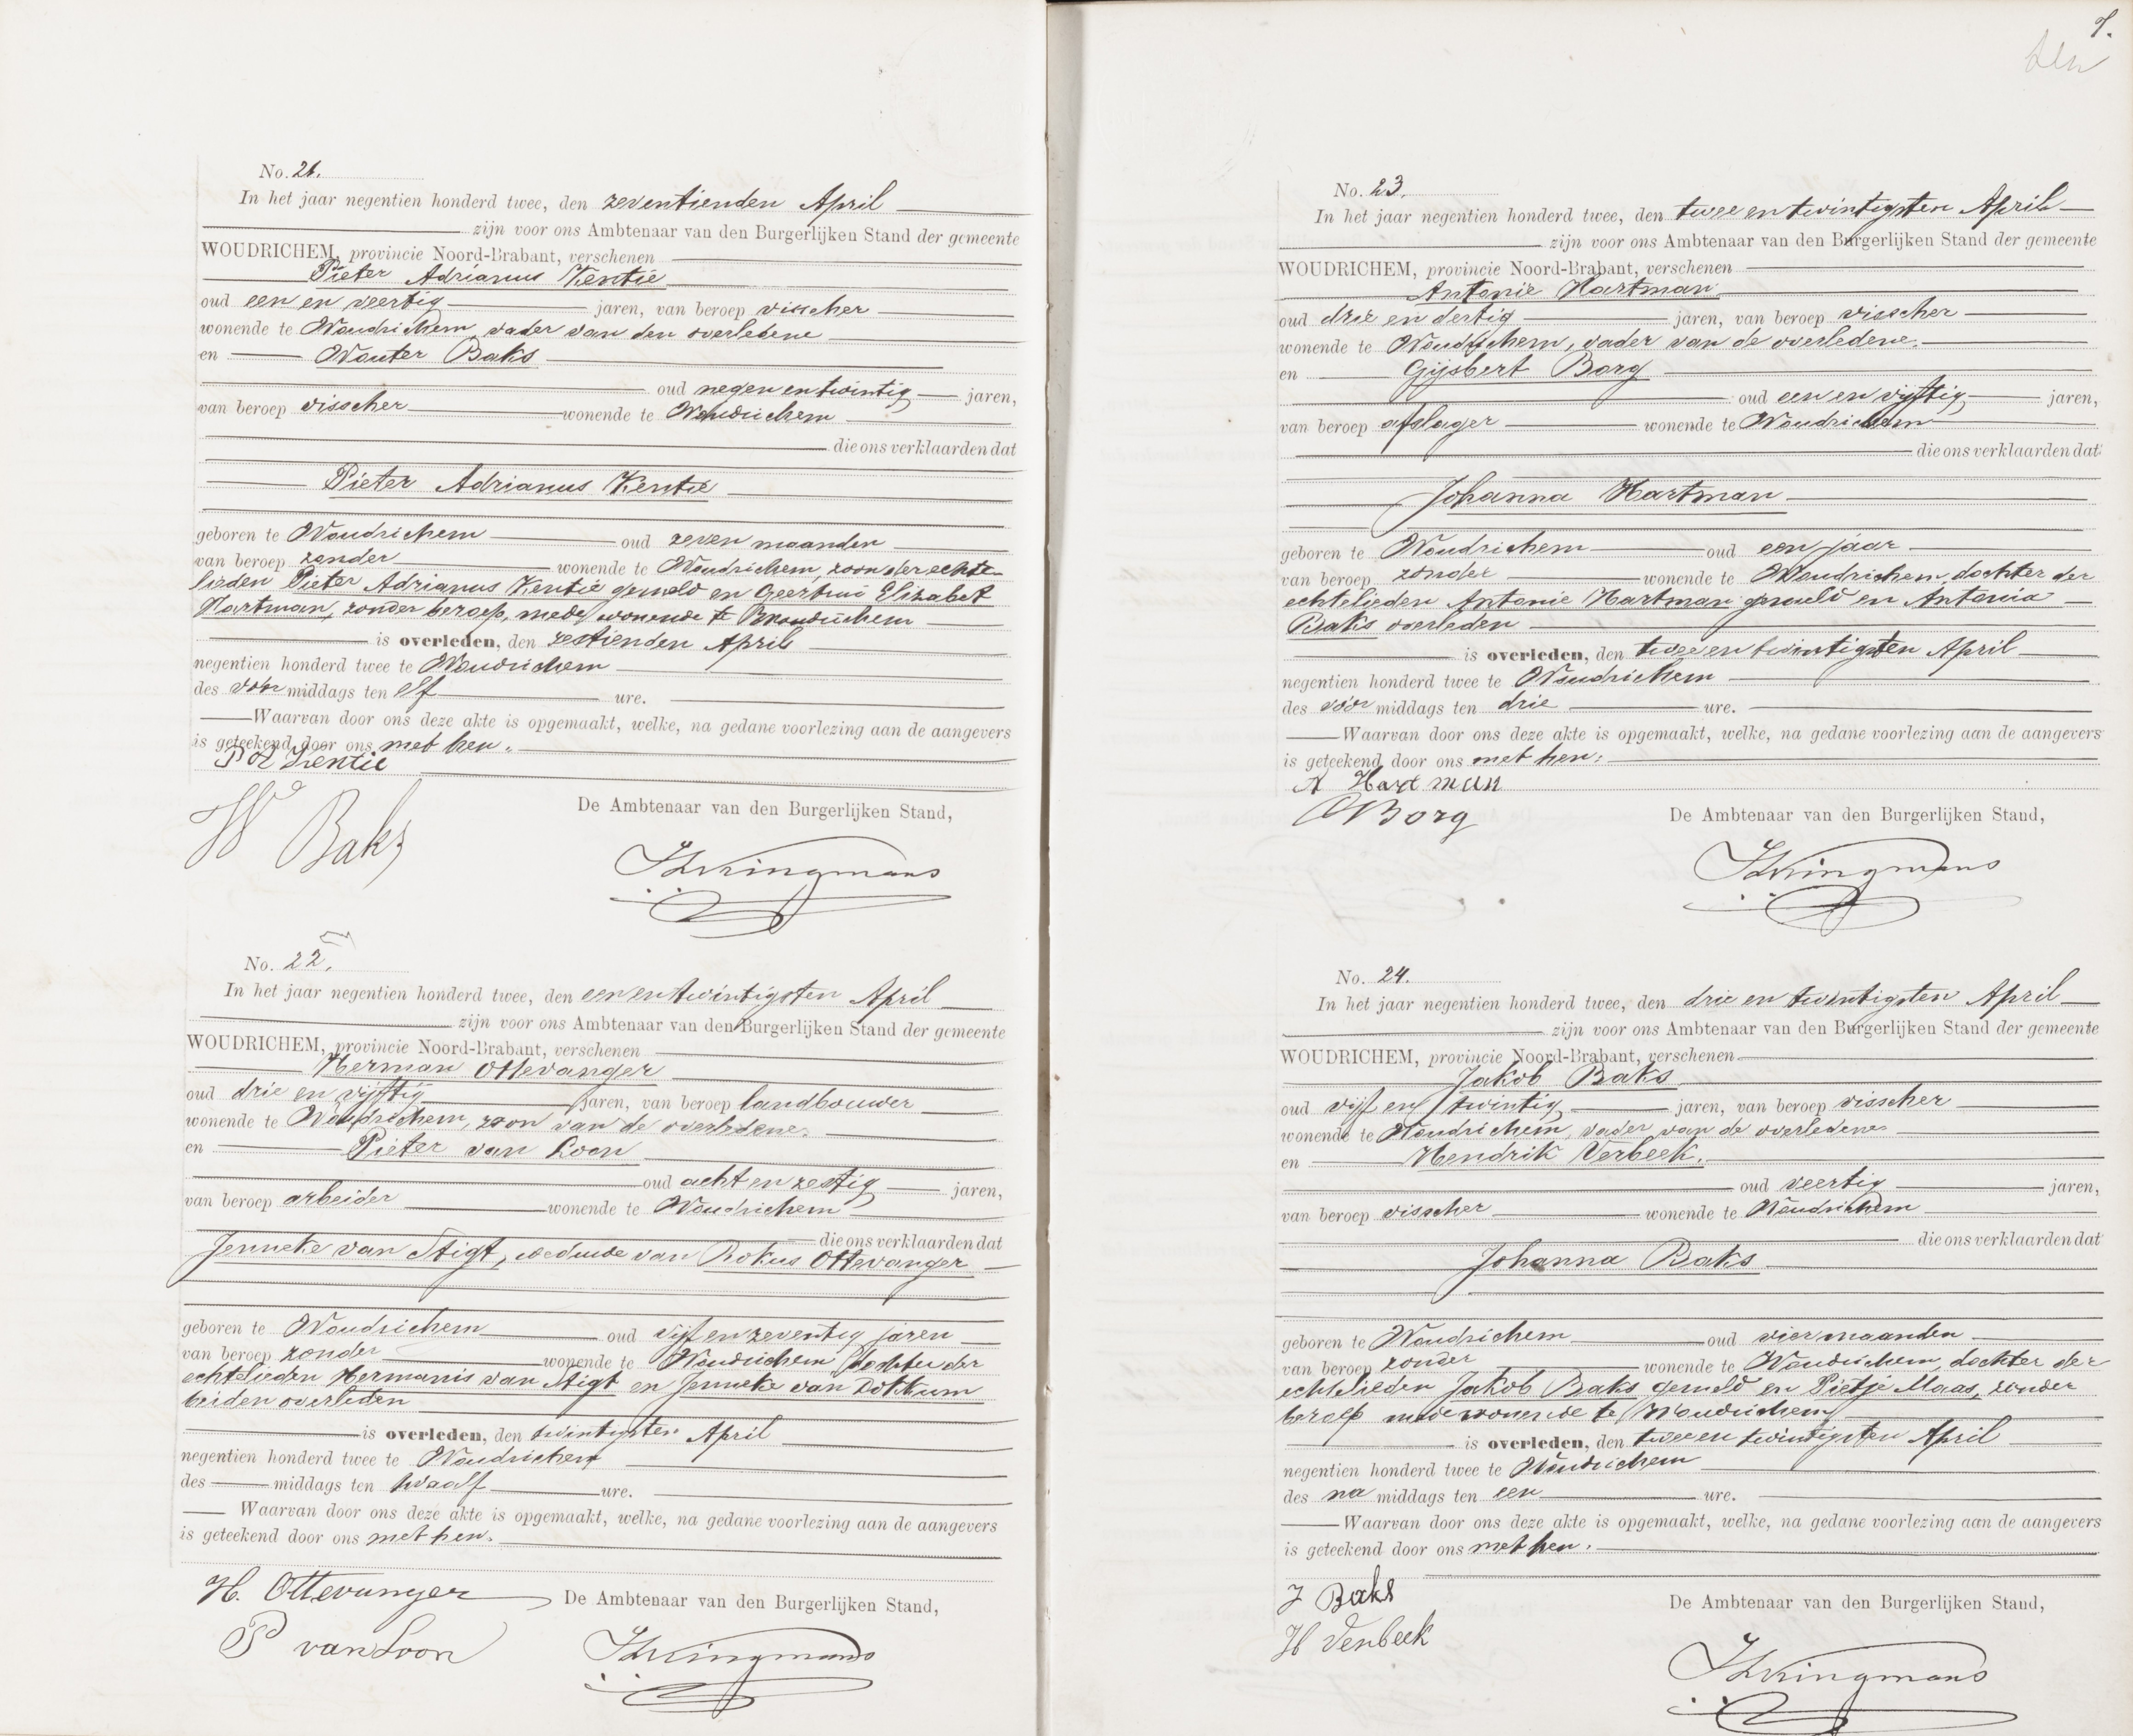 No. 21.
In het jaar negentien honderd twee, den zeventienden April
zijn voor ons Ambtenaar van den Burgerlijken Stand der gemeente
WOUDRICHEM, provincie Noord-Brabant, verschenen
Pieter Adrianus Kentie
oud een en veertig jaren, van beroep visscher
wonende te Woudrichem, vader van den overledene
en Wouter Baks
oud negen en twintig jaren,
van beroep visscher wonende te Woudrichem
die ons verklaarden dat
Pieter Adrianus Kentie
geboren te Woudrichem oud zeven maanden
van beroep zonder wonende te Woudrichem, zoon der echte-
lieden Pieter Adrianus Kentie gemeld en Geertrui Elizabet
Hartman, zonder beroep, mede wonende te Woudrichem
is overleden, den zestienden April
negentien honderd twee te Woudrichem
des voor middags ten elf ure.
Waarvan door ons deze akte is opgemaakt, welke, na gedane voorlezing aan de aangevers
is geteekend door ons met hen.
P A Kentie
W Baks
De Ambtenaar van den Burgerlijken Stand,
No. 22.
In het jaar negentien honderd twee, den een en twintigsten April
zijn voor ons Ambtenaar van den Burgerlijken Stand der gemeente
WOUDRICHEM, provincie Noord-Brabant, verschenen
Herman Ottevanger
oud drie en vijftig jaren, van beroep landbouwer
wonende te Woudrichem, zoon van de overledene.
en Pieter van Loon
oud acht en zestig jaren,
van beroep arbeider wonende te Woudrichem
die ons verklaarden dat
Jenneke van Stigt, weduwe van Rokus Ottevanger
geboren te Woudrichem oud vijf en zeventig jaren
van beroep zonder wonende te Woudrichem dochter der
echtelieden Hermanis van Stigt en Jenneke van Dokkum
beiden overleden
is overleden, den twintigsten April
negentien honderd twee te Woudrichem
des middags ten twaalf ure.
Waarvan door ons deze akte is opgemaakt, welke, na gedane voorlezing aan de aangevers
is geteekend door ons met hen.
H. Ottevanger
De Ambtenaar van den Burgerlijken Stand,
P van Loon
7.
No. 23.
In het jaar negentien honderd twee, den twee en twintigsten April
zijn voor ons Ambtenaar van den Burgerlijken Stand der gemeente
WOUDRICHEM, provincie Noord-Brabant, verschenen
Antonie Hartman
oud drie en dertig jaren, van beroep visscher
wonende te Woudrichem, vader van de overledene.
en Gijsbert Borg
oud een en vijftig jaren,
van beroep afslager wonende te Woudrichem
die ons verklaarden dat
Johanna Hartman
geboren te Woudrichem oud een jaar
van beroep zonder wonende te Woudrichem, dochter der
echtelieden Antonie Hartman gemeld en Antonia
Baks overleden
is overleden, den twee en twintigsten April
negentien honderd twee te Woudrichem
des voor middags ten drie ure.
Waarvan door ons deze akte is opgemaakt, welke, na gedane voorlezing aan de aangevers
is geteekend door ons met hen.
A Hartman
GBorg
De Ambtenaar van den Burgerlijken Stand,
No. 24.
In het jaar negentien honderd twee, den drie en twintigsten April
zijn voor ons Ambtenaar van den Burgerlijken Stand der gemeente
WOUDRICHEM, provincie Noord-Brabant, verschenen
Jakob Baks
oud vijf en twintig jaren, van beroep visscher
wonende te Woudrichem, vader van de overledene
en Hendrik Verbeek.
oud veertig jaren,
van beroep visscher wonende te Woudrichem
die ons verklaarden dat
Johanna Baks
geboren te Woudrichem oud vier maanden
van beroep zonder wonende te Woudrichem, dochter der
echtelieden Jakob Baks gemeld en Pietje Maas, zonder
beroep mede wonende te Woudrichem
is overleden, den twee en twintigsten April
negentien honderd twee te Woudrichem
des na middags ten een ure.
Waarvan door ons deze akte is opgemaakt, welke, na gedane voorlezing aan de aangevers
is geteekend door ons met hen.
J Baks
De Ambtenaar van den Burgerlijken Stand,
H Verbeek